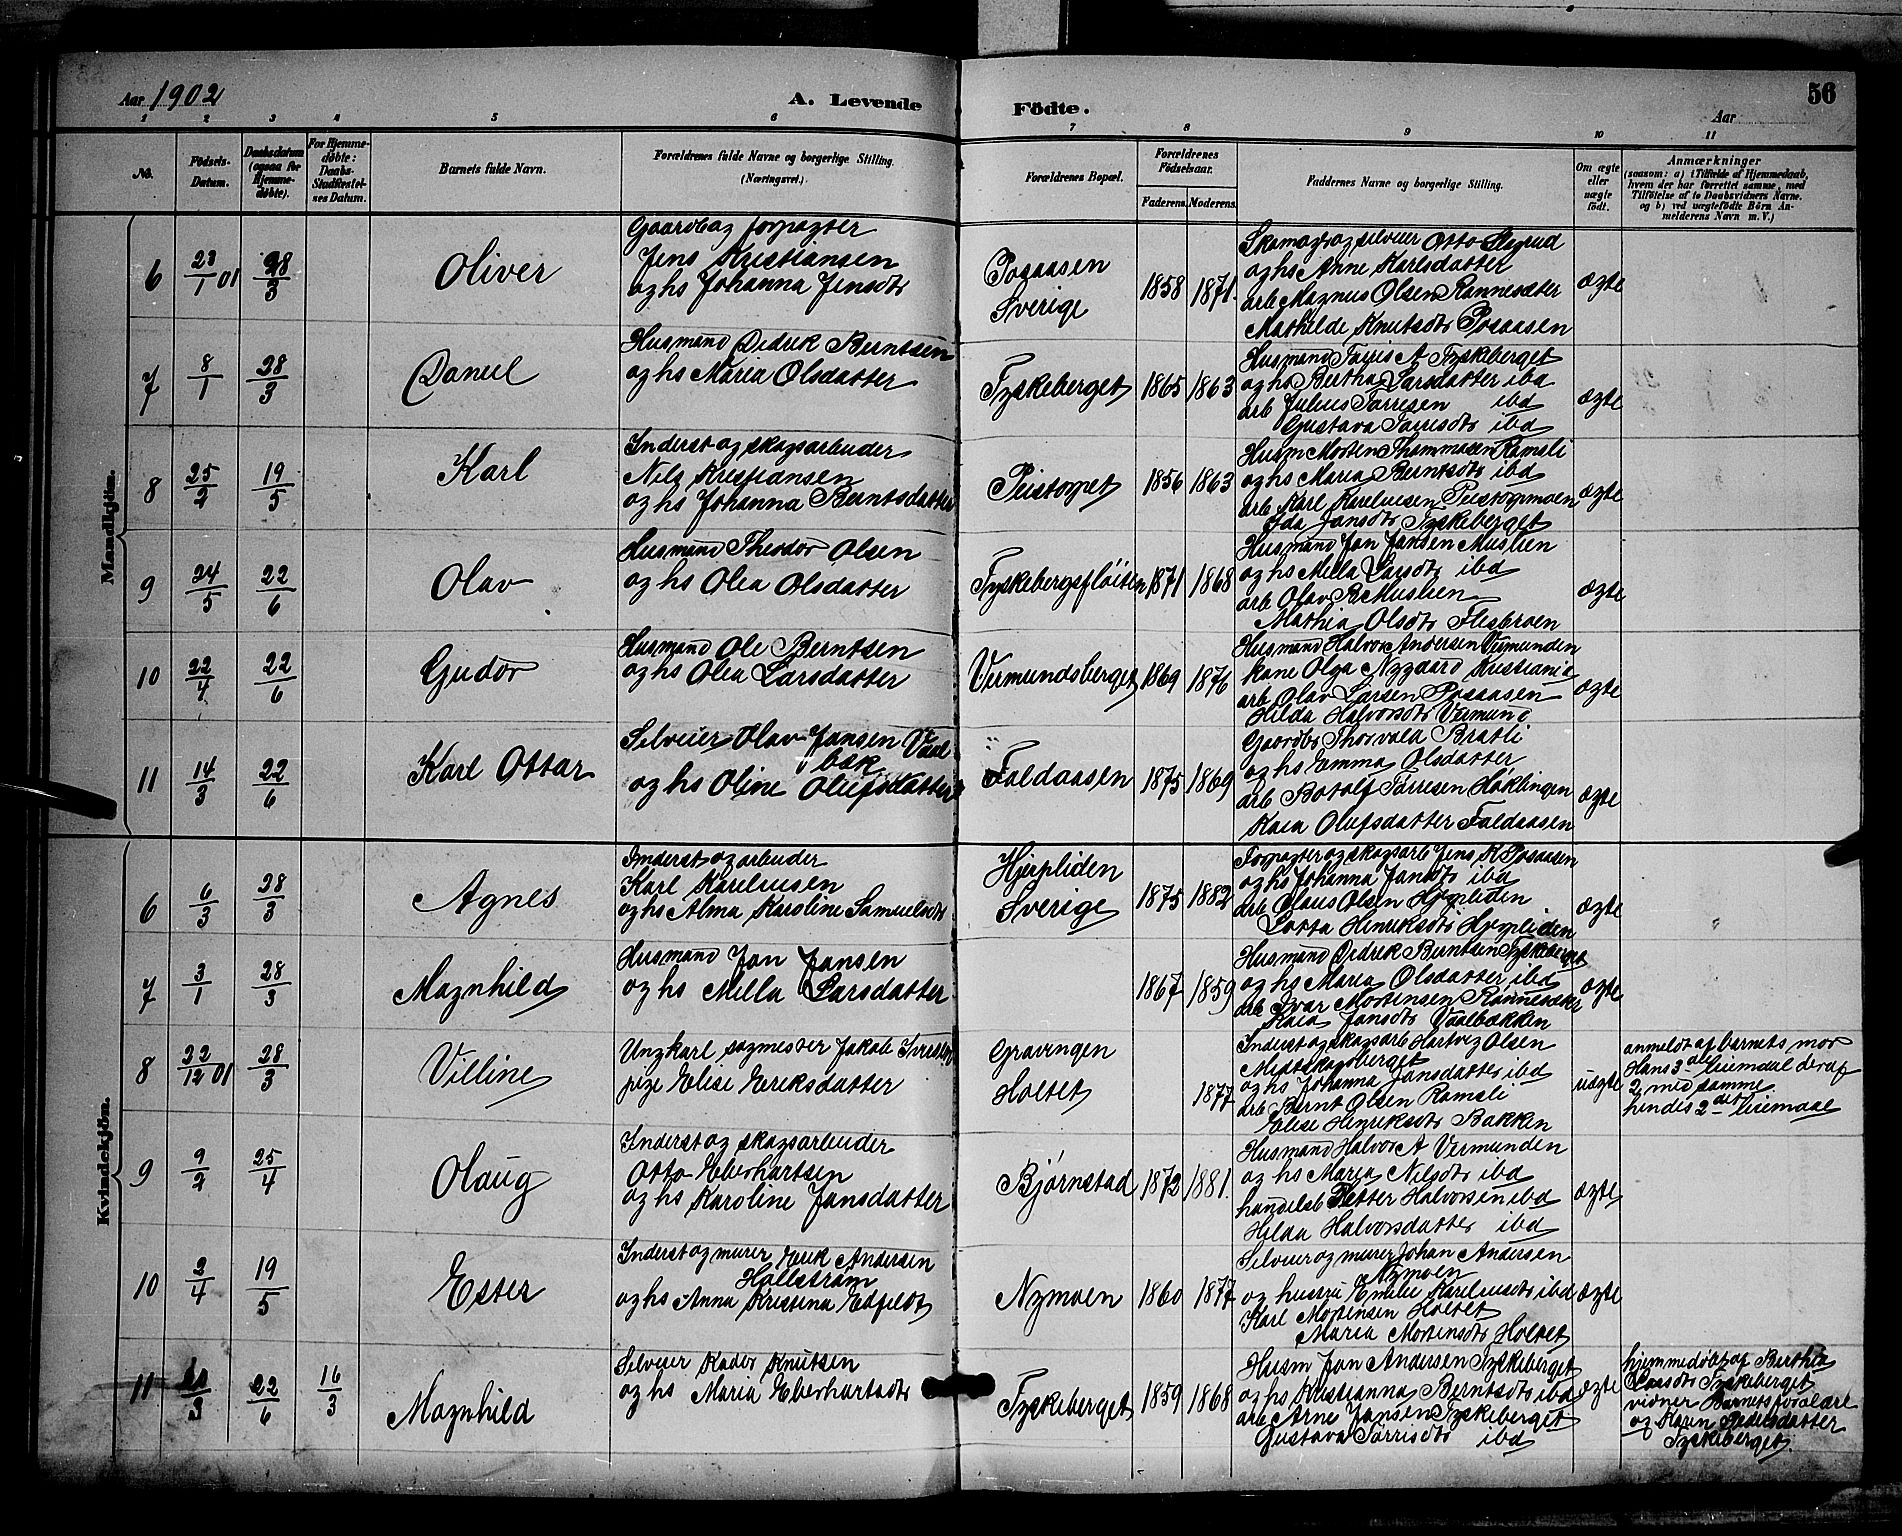 Aar 1902
A. Levende Födte.
Aar
56
1 2 3 4 5 6 7 8 9 10 11
No.
Födsels-
Datum.
Daabsdatum
(ogsaa for
Hjemme-
døbte).
For Hjemme-
døbte:
Daabs-
Stadfæstel-
ses Datum.
Barnets fulde Navn.
Forældrenes fulde Navne og borgerlige Stilling.
(Næringsvei.)
Forældrenes Bopæl.
Forældrenes
Födselsaar.
Faderens. Moderens.
Faddernes Navne og borgerlige Stilling.
Om ægte
eller
uægte
født.
Anmærkninger
(saasom: a) i Tilfælde af Hjemmedaab,
hvem der har forrettet samme, med
Tilföielse af to Daabsvidners Navne,
og b) ved uægtefödte Börn An-
melderens Navn m. V.)
Mandkjön.
6 23/1 01 28/3 Oliver
Gaardbog forpagter
Jens Kristiansen
og hs Johanna Jensdtr
Posaasen
Sverige
1858 1871
Skomager og selveier Otto
og hs Anne Karlsdatter
arb Magnus Olsen Rønnesæter
Mathilde Knutsdtr Posaasen
ægte
7 8/1 28/3 Daniel
Husmand Didrik Berntsen
og hs Maria Olsdatter
Tyskeberget 1865 1863
Husmand Tarris A Tyskeberget
og hs Bertha Larsdatter ibd
arb Julius Tarresen ibd
Gustava Tarrisdtr ibd
ægte
8 25/2 19/5 Karl
Inderst og skogsarbeider
Nils Kristiansen
og hs Johanna Berntsdatter
Peistorpet 1856 1863
Husm Morten Thommasen Ramsli
og hs Maria Berntsdtr ibd
arb Karl Karelius­en Peistorpmoen
Ida Jansdtr Tyskeberget
ægte
9 24/5 22/6 Olav
Husmand Theodor Olsen
og hs Olea Olsdatter
Tyskebergsfløiten 1871 1868
Husmand Jan Jansen Muslien
og hs Milla Larsdtr ibd
arb Olav R Muslien
Mathia Olsdtr Flisbroen
ægte
10 22/4 22/6 Gudor
Husmand Ole Berntsen
og hs Olea Larsdatter
Vermundsberget 1869 1876
Husmand Halvor Andersen Vermunden
kone Olga Nygaard Kristiania
arb Olav Larsen Posaasen
Hilda Halvorsdtr Vermund
ægte
11 14/3 22/6 Karl Ottar
Selveier Olav Jansen Vaal
bæk
og hs Oline Olufsdatter
Faldaasen 1875 1869
Gaardbr Thorvald Bratli
og hs Emma Olsdatter
arb Botolf Tørresen Høklingen
Kaia Olufsdatter Faldaasen
ægte
Kvindekjön.
6 6/3 28/3 Agnes
Inderst og arbeider
Karl Kareliusen
og hs Alma Karoline Samuelsdtr
Hjerpliden
Sverige
1875 1882
Forpagter og skogsarb Jens K Posaasen
og hs Johanna Jansdtr ibd
arb Claus Olsen Hjerpliden
Lotta Henriksdtr Hjerpliden
ægte
7 3/1 28/3 Magnhild
Husmand Jan Jansen
og hs Milla Larsdatter
1867 1859
Husmand Didrik Berntsen Tyskeberget
og hs Maria Olsdatter ibd
arb Ivar Mortensen Rønnesæter
Kaia Jansdtr Vaalbækken
ægte
8 22/12 01 28/3 Villine
Ungkarl sagmester Jakob
pige Elise Eriksdatter
Gravingen
Holtet
1877
Inderst og skogsarb Hartvig Olsen
Midtskogsberget
og hs Johanna Jansdatter ibd
arb Bernt Olsen Ramsli
Elise Henriksdtr Bakken
uægte
anmeldt af barnets mor
Hans 3die leiemaal deraf
2 med samme
hendes 2det leiemaal
9 9/2 25/4 Olaug
Inderst og skogsarbeider
Otto Eberhartsen
og hs Karoline Jansdatter
Bjørnstad 1872 1881
Husmand Halvor A Vermunden
og hs Maria Nilsdtr ibd
handelsb Petter Halvorsen ibd
Hilda Halvorsdatter ibd
ægte
10 2/4 19/5 Ester
Inderst og murer Erik Andersen
Hallstrøm
og hs Anna Kristina Edfeldt
Nymoen 1860 1877
Selveier og murer Johan Andersen
Nymoen
og hustru Emelie Kareliusdtr ibd
Karl Mortensen Holtet
Maria Mortensdtr Holtet
ægte
11 /3 22/6 16/3 Magnhild
Selveier Kador Knutsen
og hs Maria Eberhartsdtr
Tyskeberget 1859 1868
Husm Jan Andersen Tyskeberget
og hs Kristianna Berntsdtr ibd
arb Arne Jansen Tyskeberget
Gustava Tarrisdtr ibd
ægte
hjemmedøbt af Berthe
Larsdtr Tyskeberget
vidner Barnets forældre
og Karen Pedersdatter
Tyskeberget